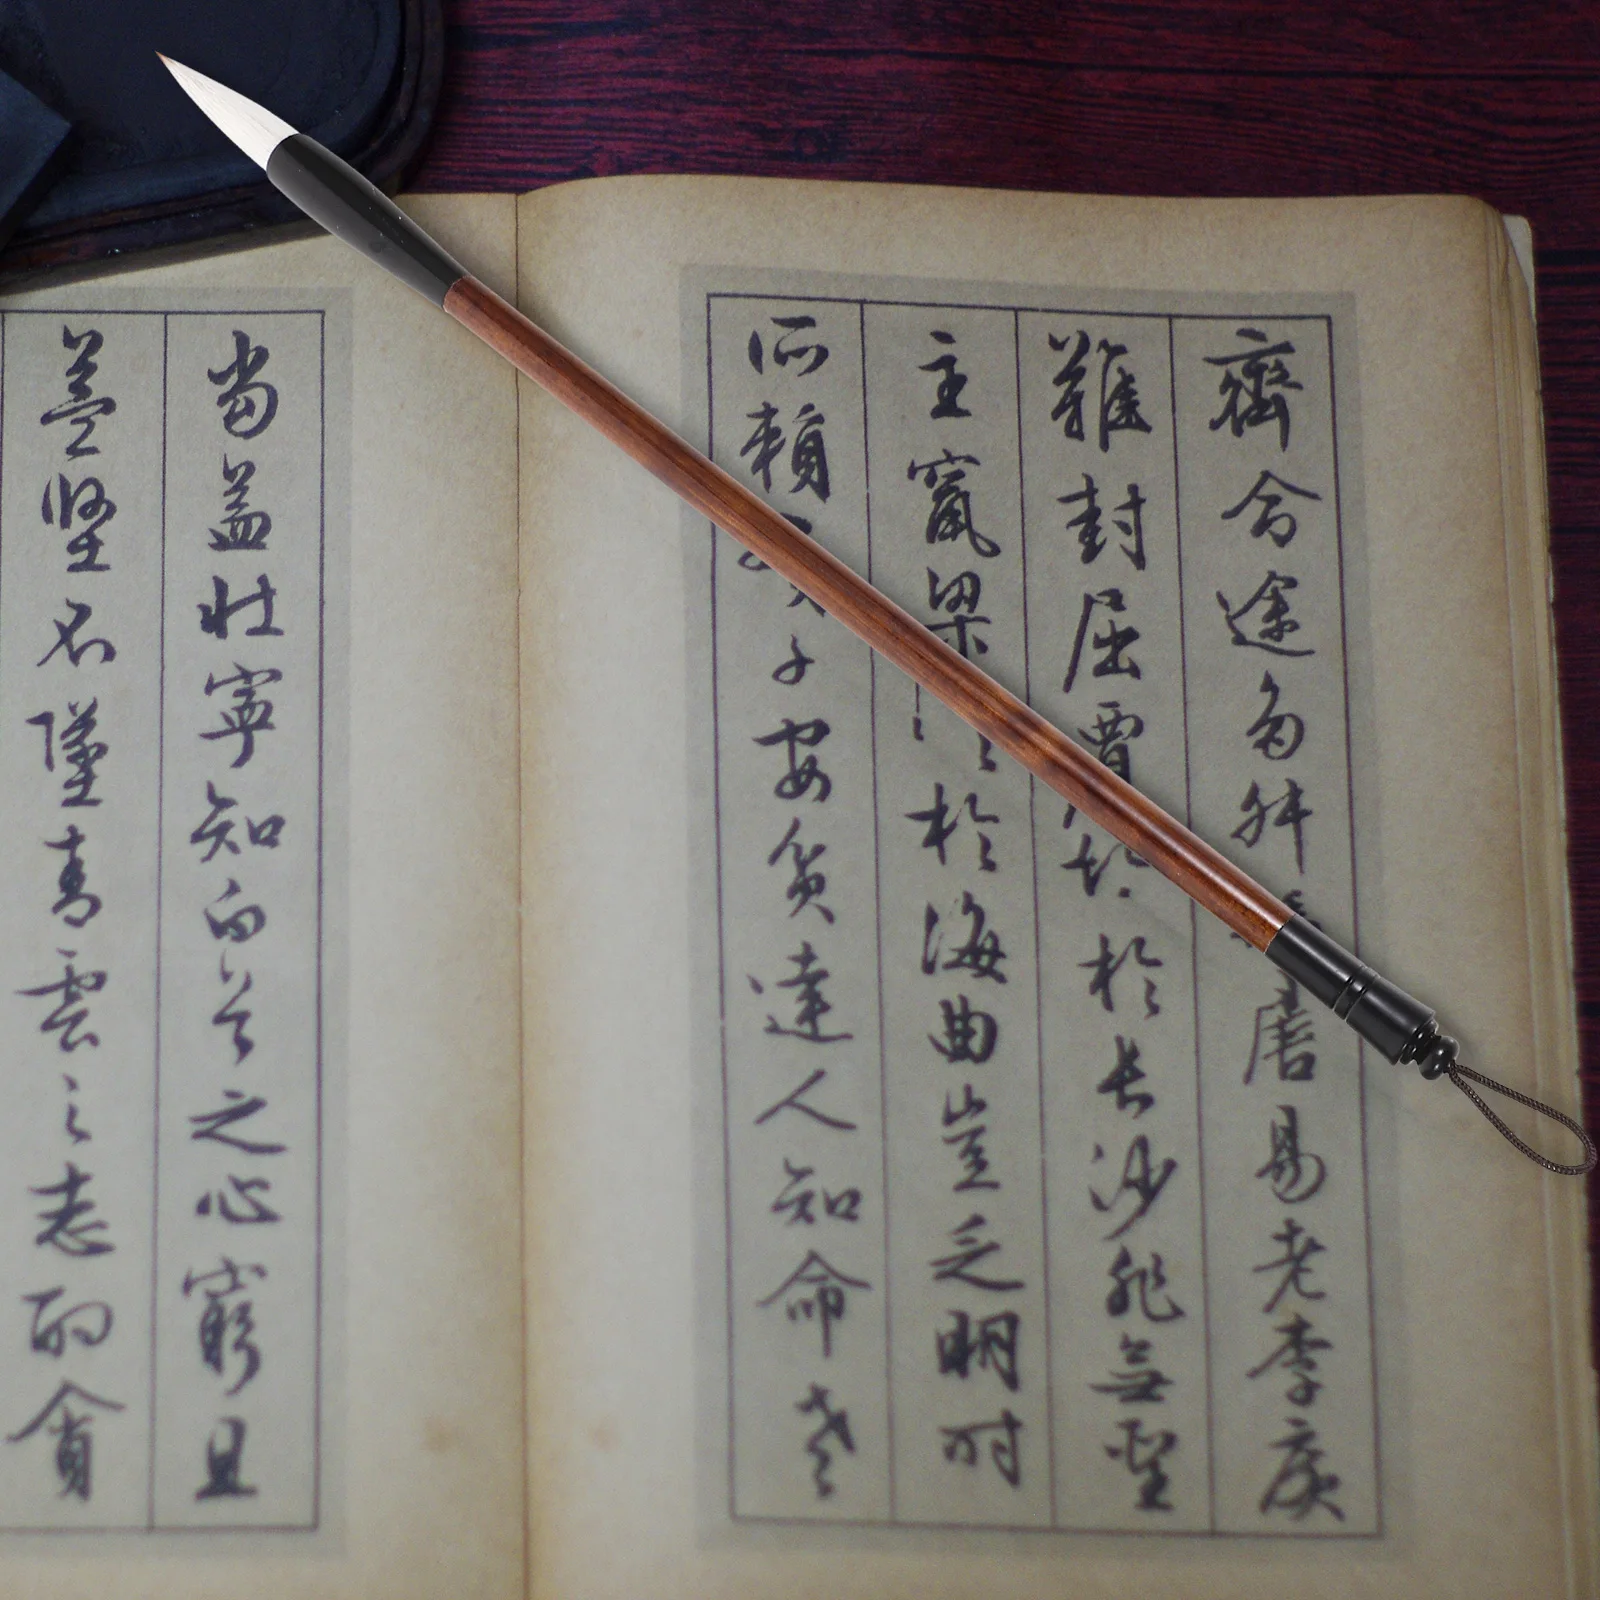 齊命途多舛馮唐易老李廣
難封屈賈誼於長沙非無聖
主竄梁鴻於海曲豈乏明時
所賴君子安貧達人知命老
當益壯寧知白首之心窮且
益堅不墜青雲之志酌貪